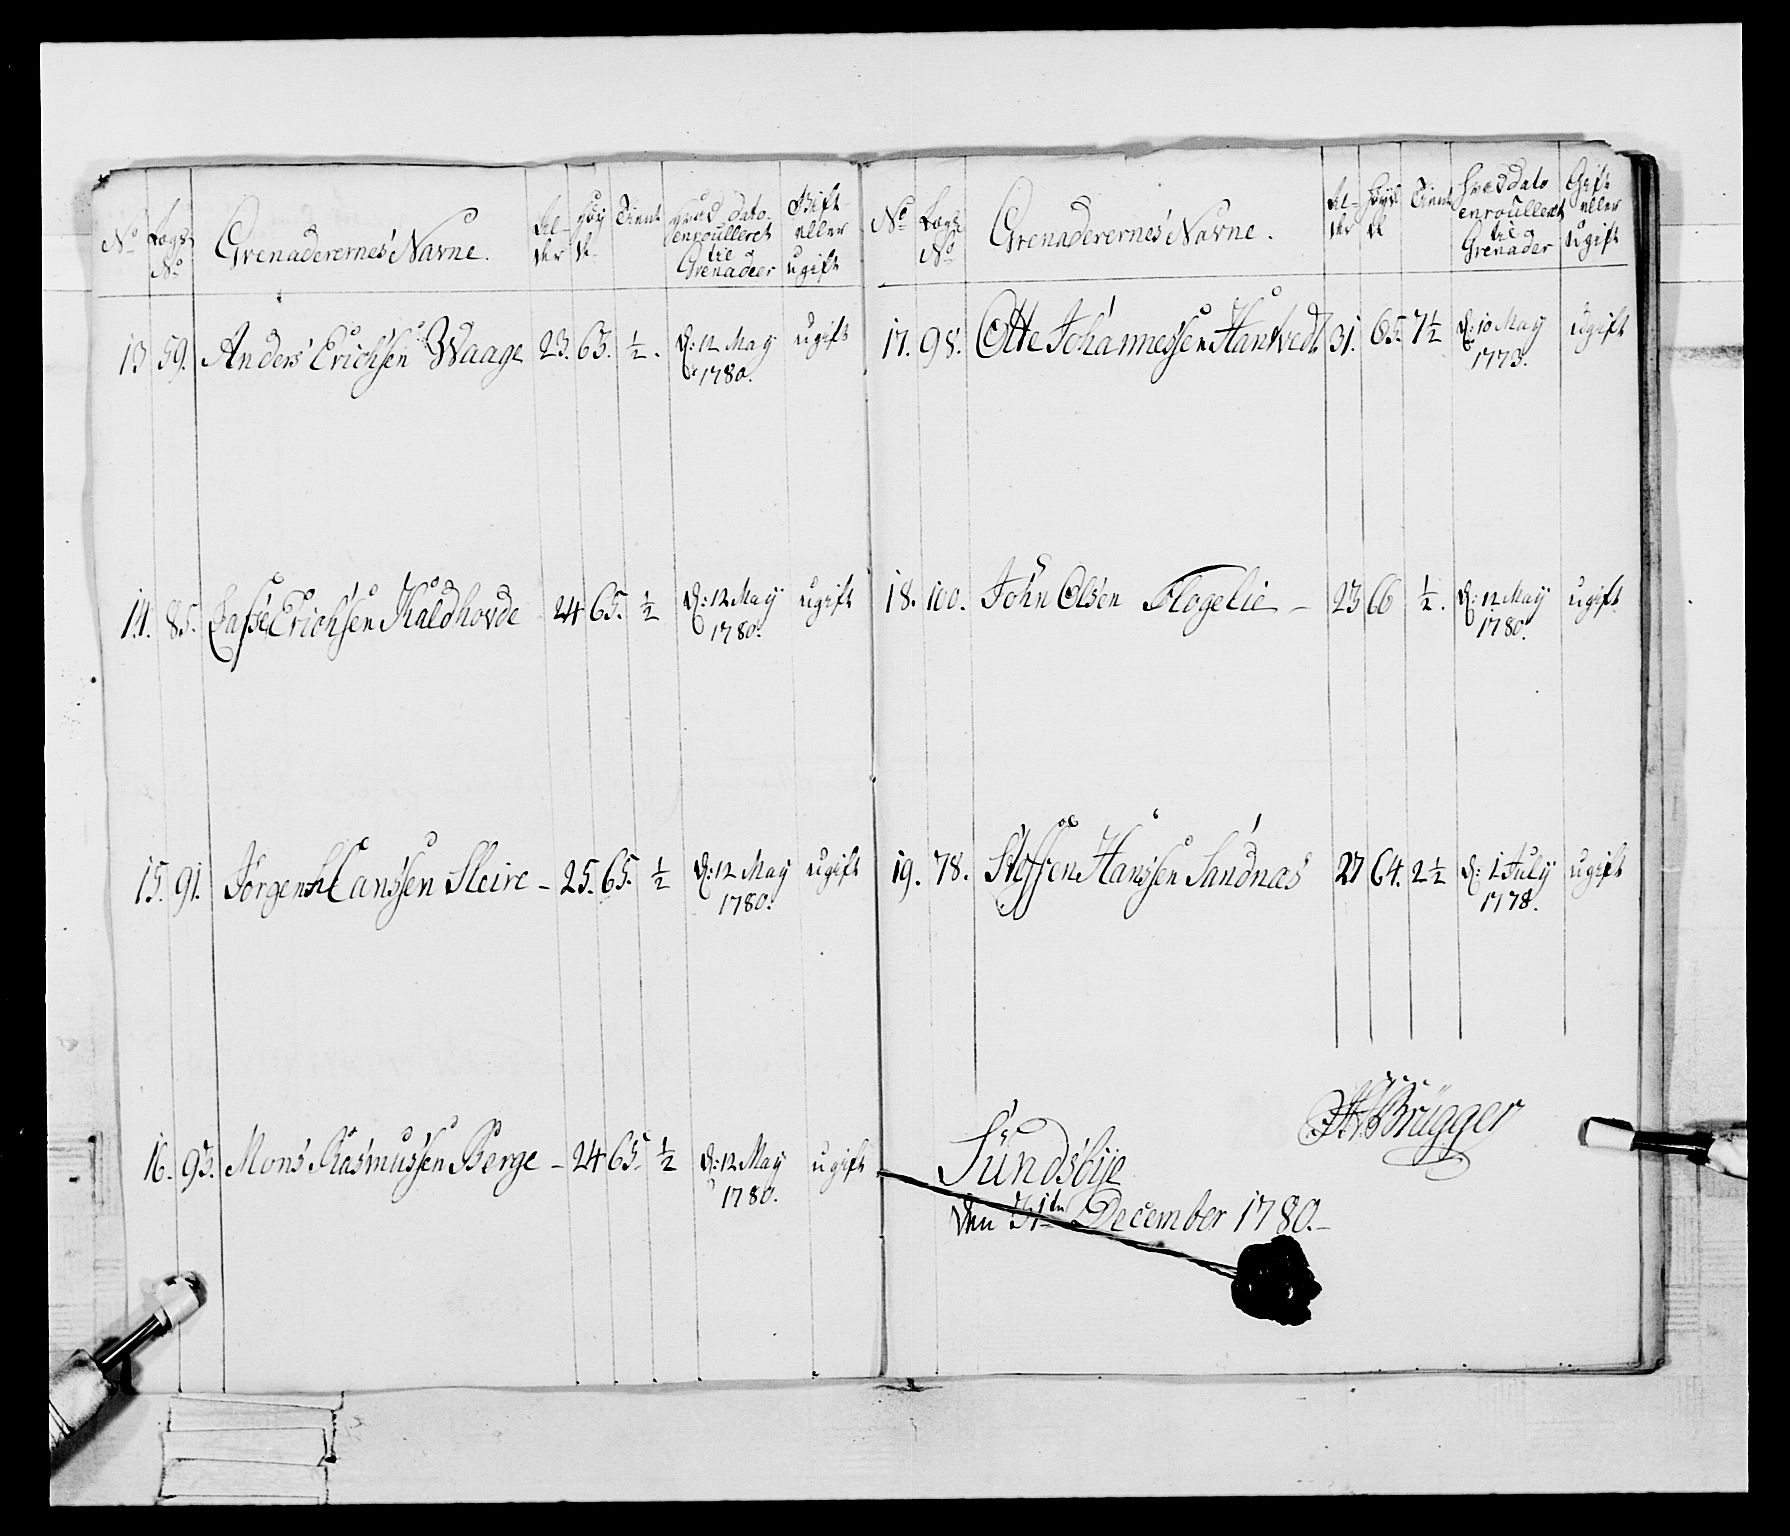 No Lægs No Grenaderernes Navne. Al-der Høy de Tient hvad dato enroulleret til Grenadeer Gift eller ugift
13 59. Anders Erichsen Waage 23. 65. ½. d: 12 May 1780. ugift
14. 85. Lasse Erichsen Kaldhovde 24 65. ½ d: 12 May 1780. ugift
15. 91. Jørgen Hanssen Sleire - 25. 65. ½ d: 12 May 1780. ugift
16. 93. Mons Rasmussen Berge - 24 65. ½ d: 12 May 1780. ugift
No Lægs No Grenaderernes Navne. Al-der Høyde Tient hvad dato enroulleret til Grenader Gift eller ugift
17. 98. Otte Johannessen Hantvedt 31. 65. 7½ d: 10 May 1773. ugift
18. 100. John Olsen Flogelie - 23 66 ½. d: 12 May 1780. ugift
19. 78. Steffen Hanssen Sandnæs 27 64. 2½ d: 1 July 1778. ugift
Brügger
Sundsbye
den 31te December 1780.-